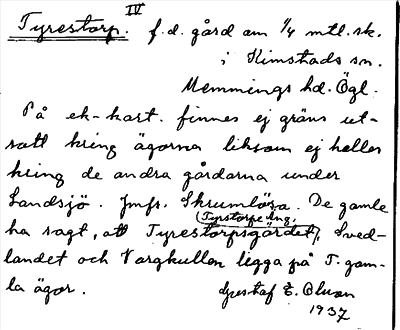 IV
Tyrestorp. f.d. gård om 1/4 mtl. sk.
i Kimstads sn.
Memmings hd. Ögl.
På ek-kart. finnes ej gräns ut-
satt kring ägorna liksom ej heller
kring de andra gårdarna under
Landsjö. Jmfr. Skrumlösa. De gamle
(Tyrstorpe Äng,
ha sagt, att Tyrestorpsgärdet, Sved-
landet och Vargkullen ligga på T. gam-
la ägor.
Gustaf E. Olson
1937